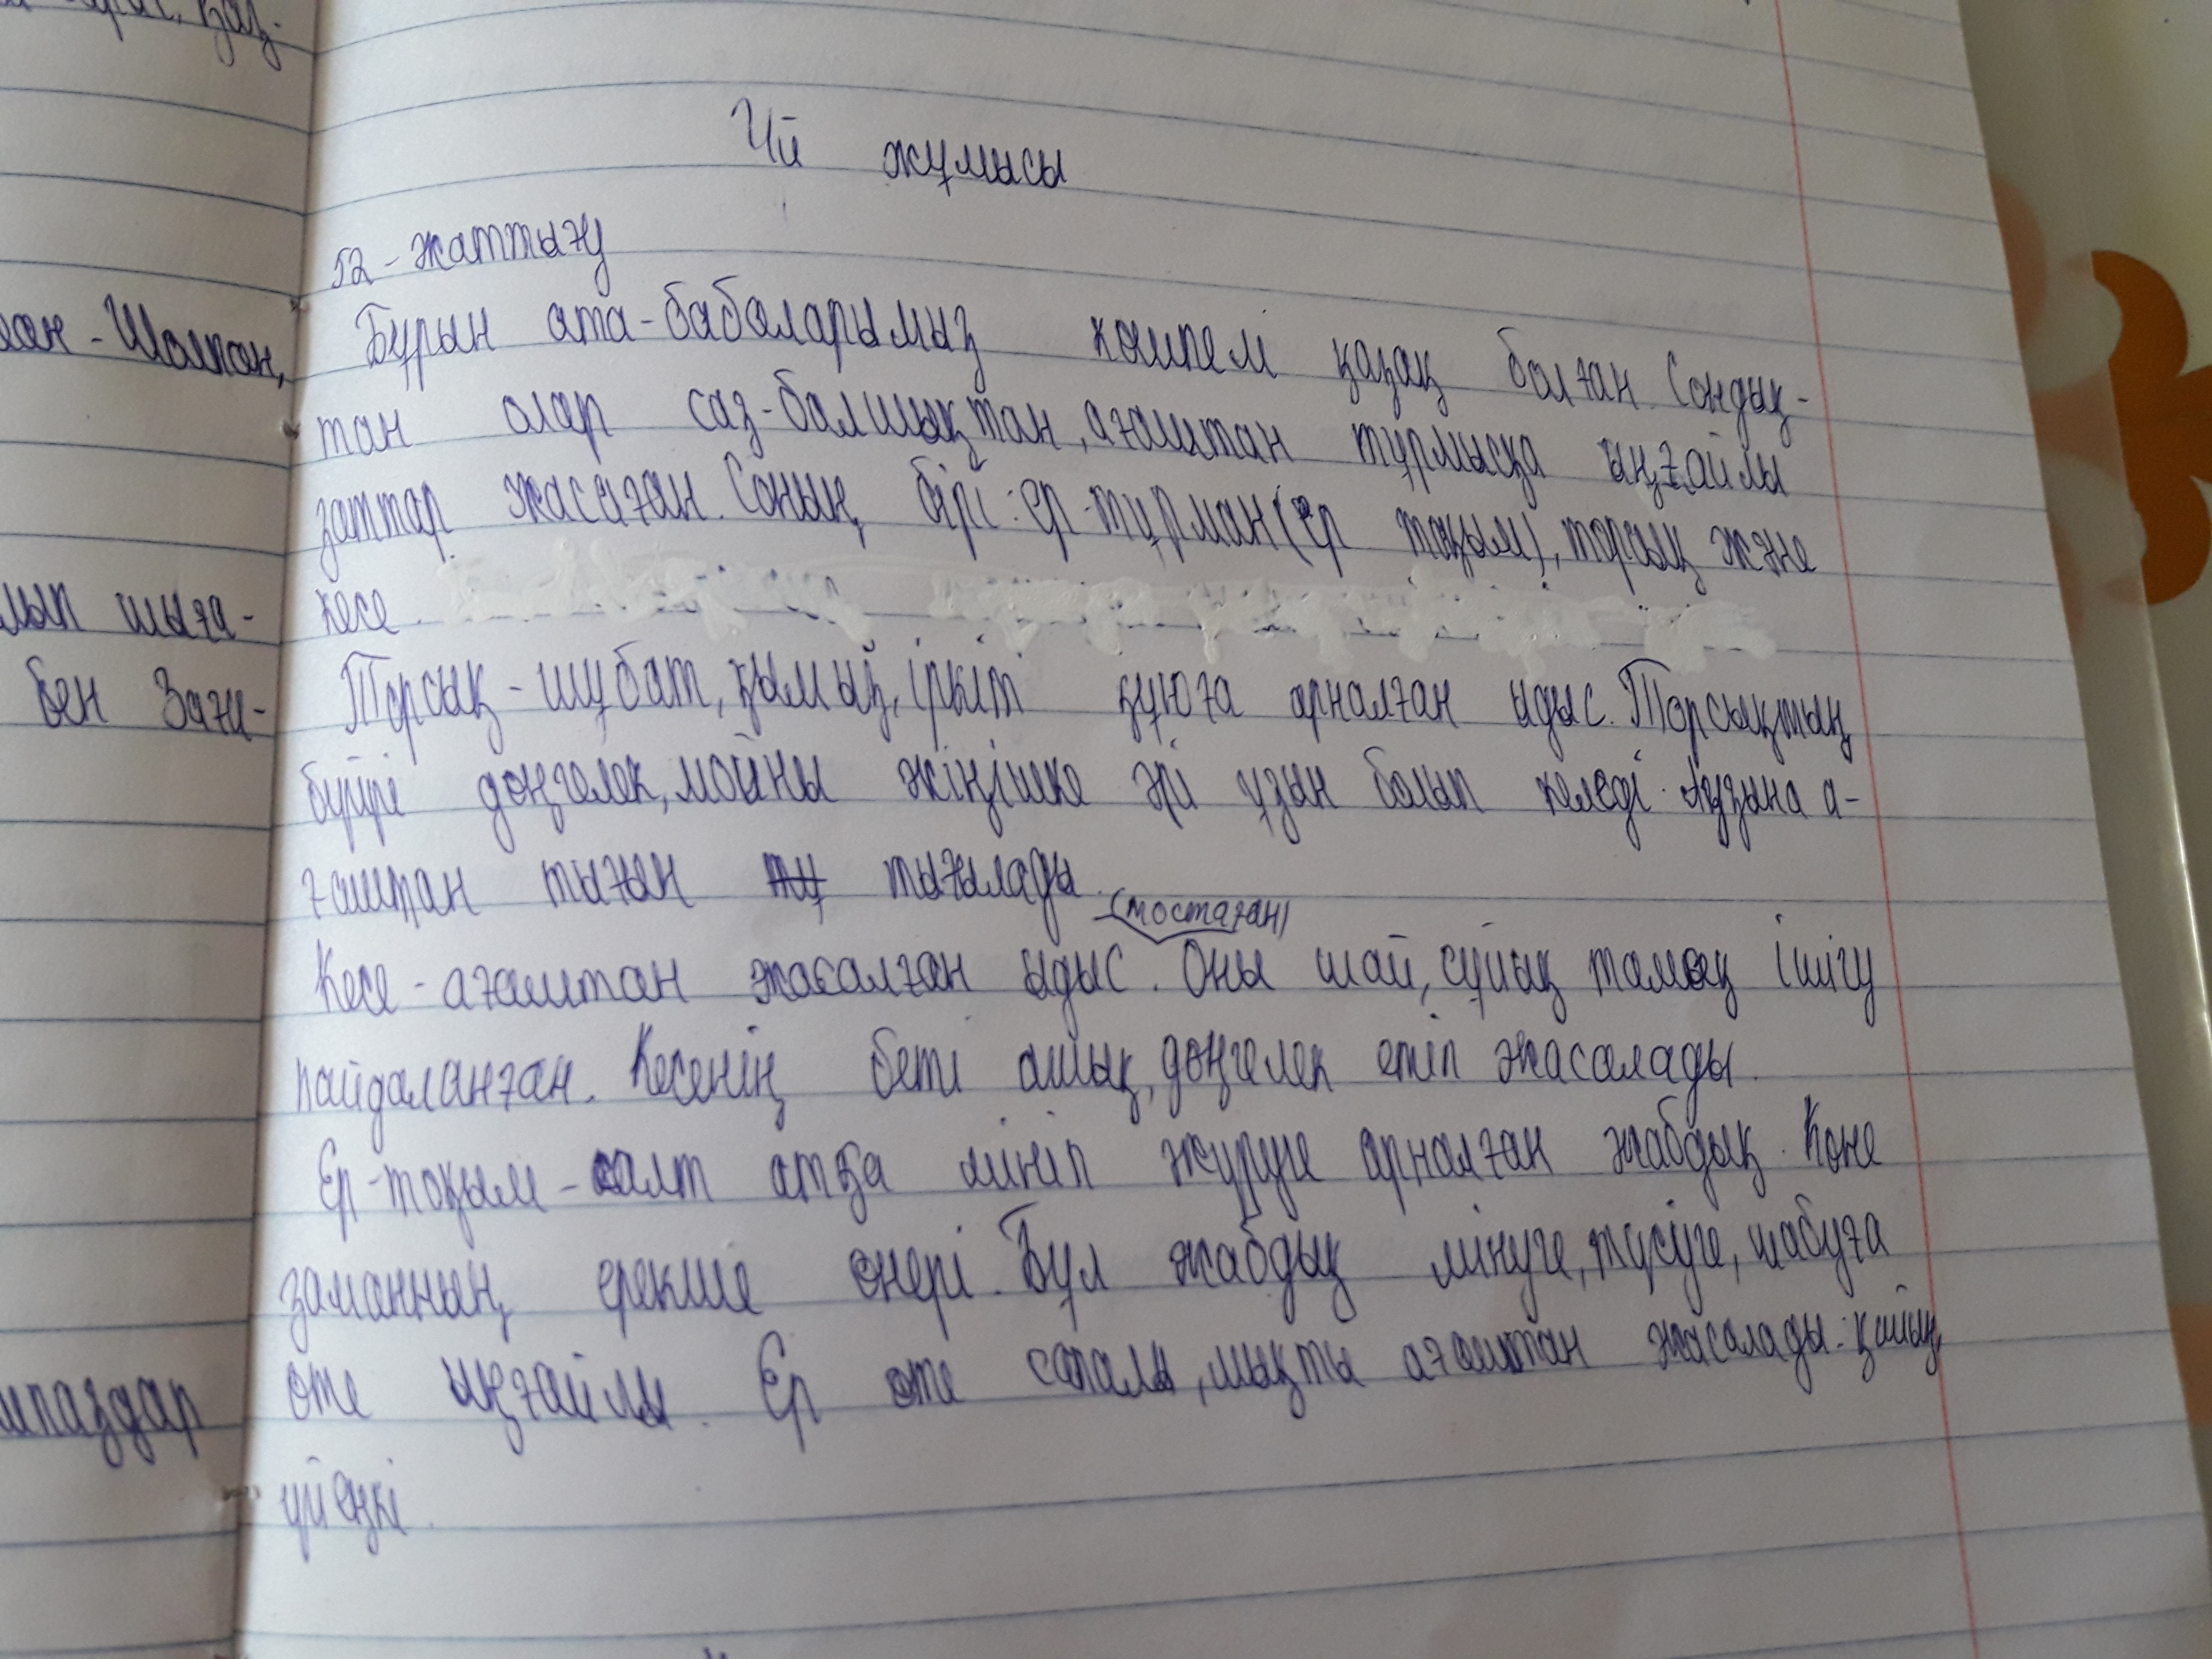 Үй жұмысы
52-жаттығу
Бұрын ата-бабаларымыз көшпелі қазақ болған. Сондық-
тан олар саз-балшықтан, ағаштан тұрмысқа ыңғайлы
заттар жасаған. Соның бірі: ер-тұрман(ер тоқым), торсық және
кесе.
Торсық-шұбат, қымыз, іркіт құюға арналған ыдыс. Торсықтың
бүйірі дөңгелек, мойны жіңішке әрі ұзын болып келеді. Аузына а-
ғаштан тығын тығылады.
(тостаған)
Кесе-ағаштан жасалған ыдыс. Оны шай, сұйық тамақ ішігу
пайдаланған. Кесенің беті ашық, дөңгелек етіп жасалады.
Ер-тоқым-салт атқа мініп жүруге арналған жабдық. Көне
заманның ерекше өнері. Бұл жабдық мінуге, түсуге, шабуға
өте ыңғайлы. Ер өте сапалы, мықты ағаштан жасалады: қайың,
үйеңкі.
қаз-
-Шолпан,
шыға-
бен Заги-